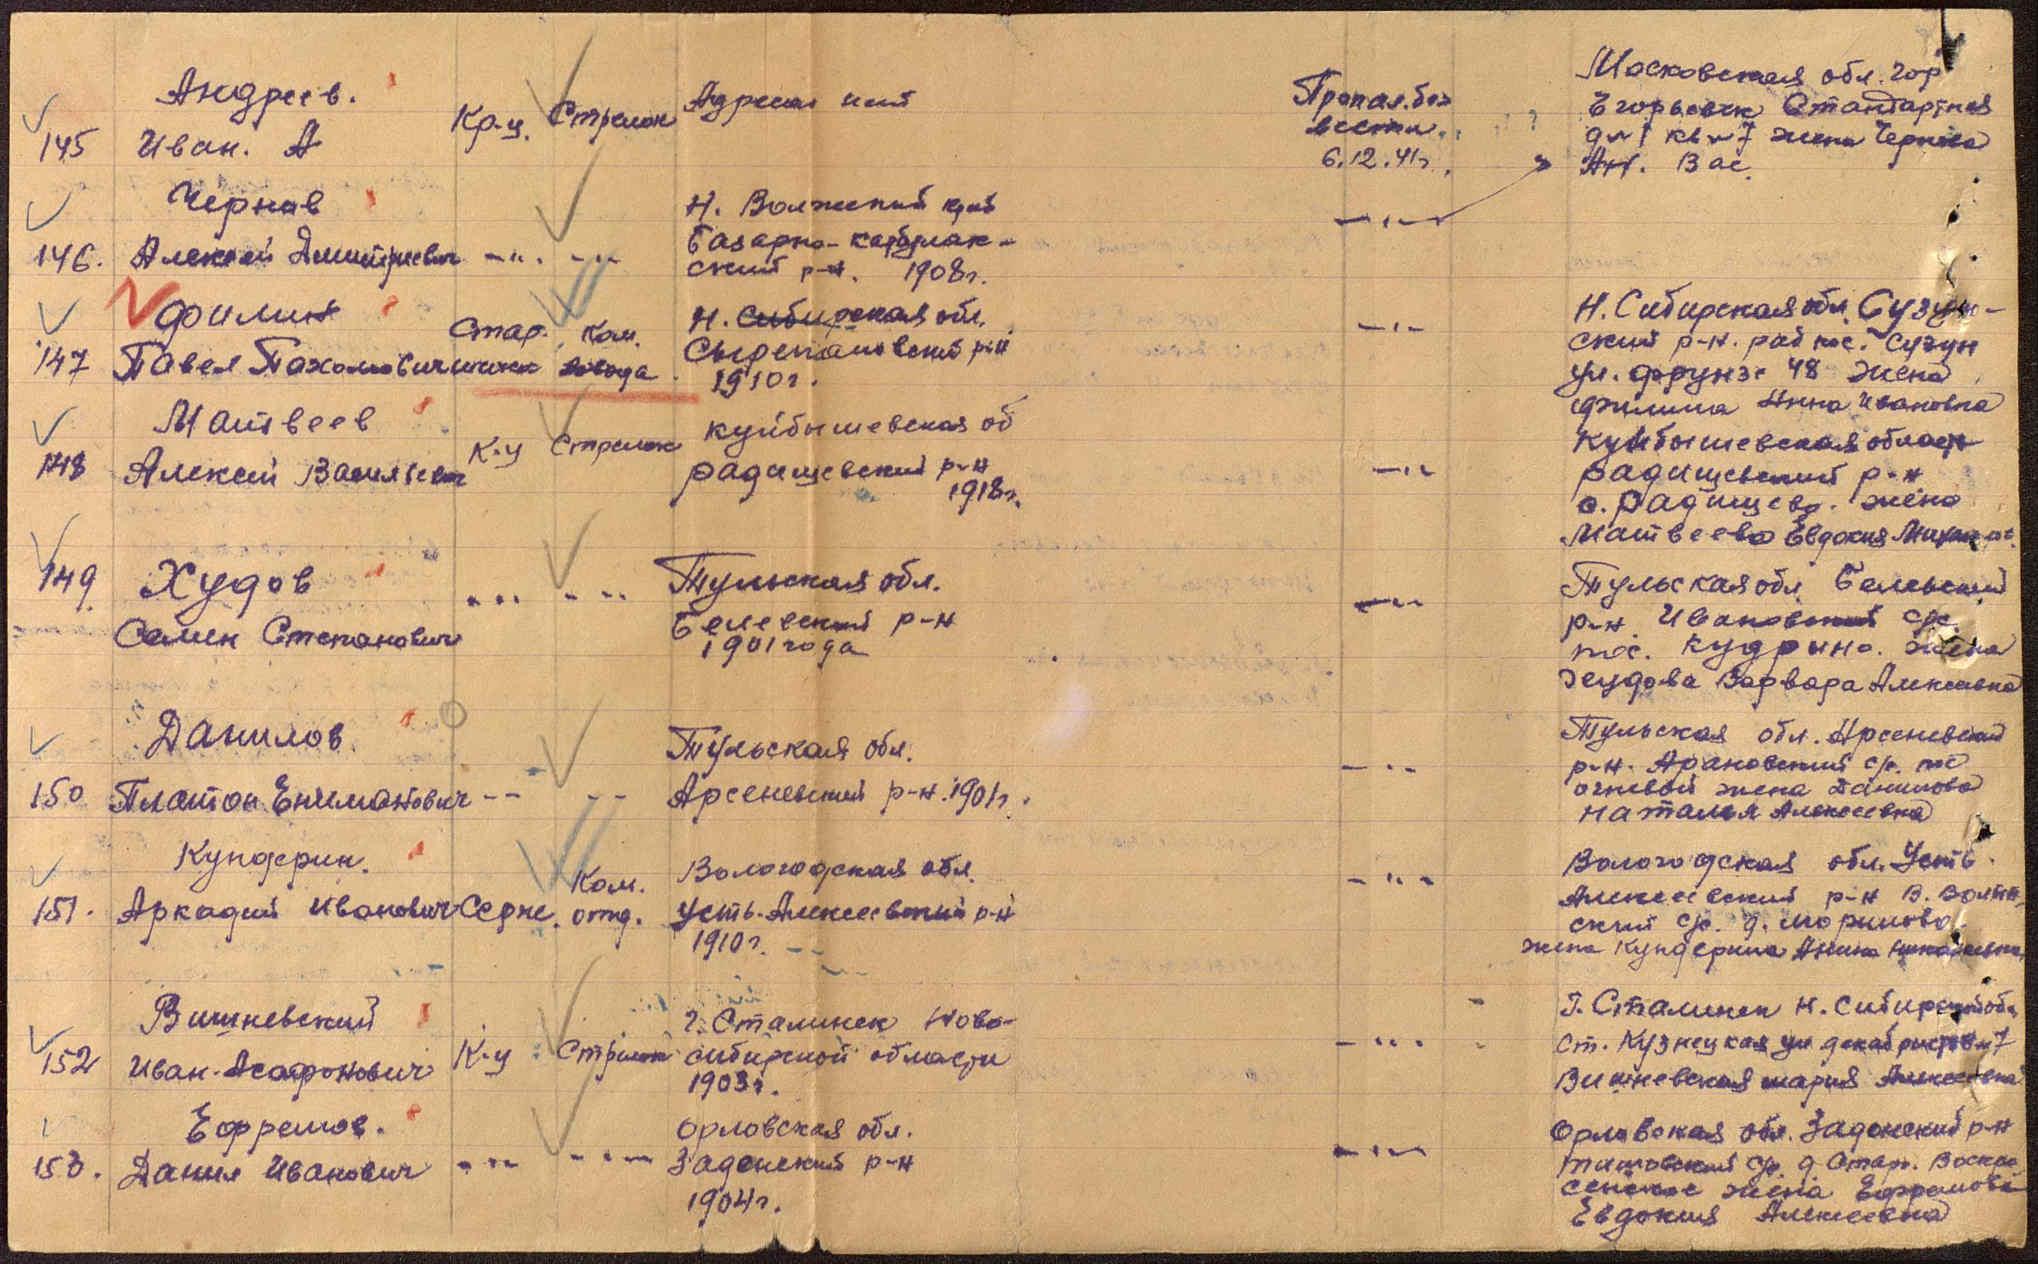 145
Андреев.
Иван. А
Кр-ц.
Стрелок
Адреса нет
Пропал. без
вести.
6.12.41г.
Московская обл. гор
Егорьевск Стандартная
д № 1 кв № 7 жена Чернова
Ан. Вас.
146.
Чернов
Алексей Дмитриевич
-"-. -"-
Н. Волжский край
Базарно-карбулак-
ский р-н. 1908г.
-"-
147
Филин
Павел Пахомович
Стар.
шина
Ком.
взвода
Н. Сибирская обл.
р-н
1910г.
-"-
Н. Сибирская обл. Сузун-
ский р-н. раб пос. Сузун
ул. Фрунзе 48 жена
Филина Анна Ивановна
148
Матвеев
Алексей Васильевич
К-ц
Стрелок
Куйбышевская об
радищевский р-н
1918г.
-"-
Куйбышевская област
Радищевский р-н
с. Радищево. жена
Матвеева Евдокия
149
Худов
Семен Степанович
-"- -"-
Тульская обл.
Белевский р-н
1901 года
-"-
Тульская обл. Белевский
р-н Ивановский с/с.
пос. Кудрино. жена
Худова Варвара Алексеевна
150
Данилов
Платон
-"- -"-
Тульская обл.
Арсеневский р-н. 1901г.
-"-
Тульская обл. Арсеневский
р-н. Арановский с/с. пос
жена Данилова
Наталья Алексеевна
151.
Кундерин.
Аркадий Иванович
Серж.
Ком.
отд.
Вологодская обл.
Усть-Алексеевский р-н
1910г.
-"-
Вологодская обл. Усть-
Алексеевский р-н В.
ский с/с. д.
жена Кундерина Анна
152
Вишневский
Иван Агафонович
К-ц
Стрелок
г. Сталинск Ново-
сибирской области
1903г.
-"-
Г. Сталинск Н. Сибирской обл.
ст. Кузнецкая ул декабристов № 7
Вишневская Мария Алексеевна
153.
Ефремов.
Данил Иванович
-"- -"-
Орловская обл.
Задонский р-н
1904г.
-"-
Орловская обл. Задонский р-н
с/с. д Стар. Воскре
сенское жена Ефремова
Евдокия Алексеевна